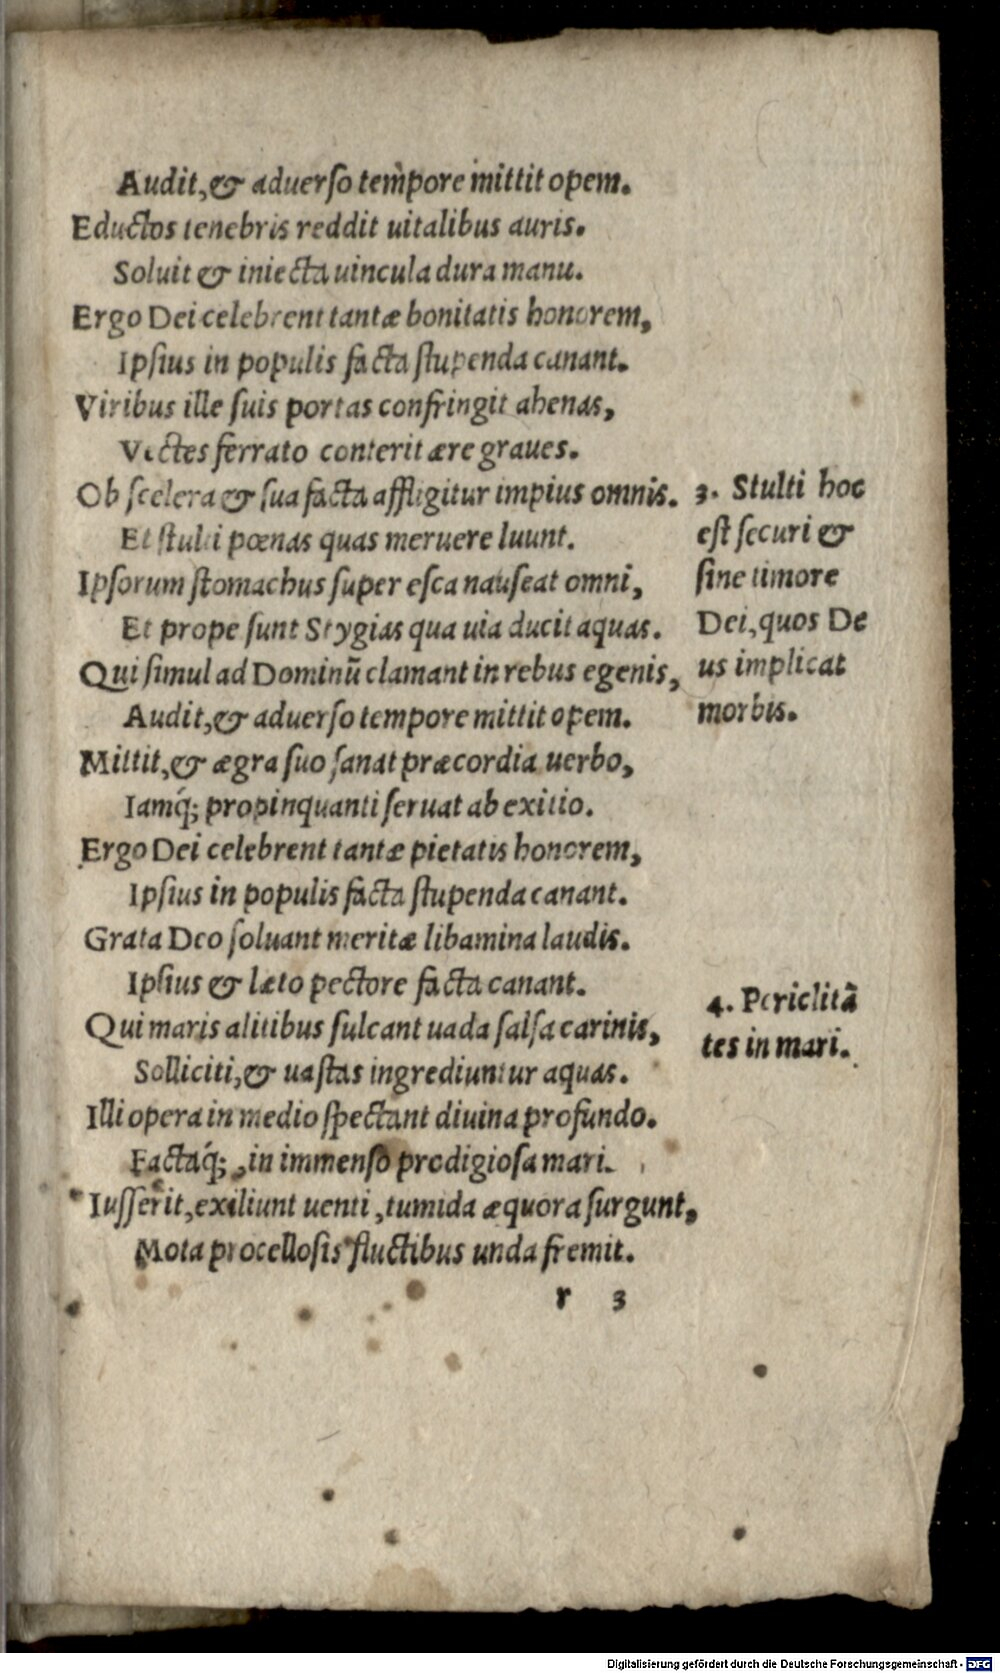 Audit, & aduerſo tempore mittit opem.
Eductos tenebris reddit uitalibus auris.
Soluit & iniecta uincula dura manu.
Ergo Dei celebrent tantæ bonitatis honorem,
Ipſius in populis facta ſtupenda canant.
Viribus ille ſuis portas confringit ahenas,
Vectes ferrato conterit ære graues.
Ob ſcelera & ſua facta affligitur impius omnis.
Et ſtulti pœnas quas meruere luunt.
Ipſorum ſtomachus ſuper eſca nauſeat omni,
Et prope ſunt Stygias qua uia ducit aquas.
Qui ſimul ad Dominū clamant in rebus egenis,
Audit, & aduerſo tempore mittit opem.
Mittit, & ægra ſuo ſanat præcordia uerbo,
Iamq́; propinquanti ſeruat ab exitio.
Ergo Dei celebrent tantæ pietatis honorem,
Ipſius in populis facta ſtupenda canant.
Grata Deo ſoluant meritæ libamina laudis.
Ipſius & læto pectore facta canant.
Qui maris alitibus ſulcant uada ſalſa carinis,
Solliciti, & uaſtas ingrediuntur aquas.
Illi opera in medio ſpectant diuina profundo.
Factaq́;, in immenſo prodigioſa mari.
Iuſſerit, exiliunt uenti, tumida æquora ſurgunt,
Mota procelloſis fluctibus unda fremit.
r 3
3. Stulti hoc
eſt ſecuri &
ſine timore
Dei, quos De
us implicat
morbis.
4. Periclitā
tes in mari.
Digitalisierung gefördert durch die Deutsche Forschungsgemeinschaft - DFG